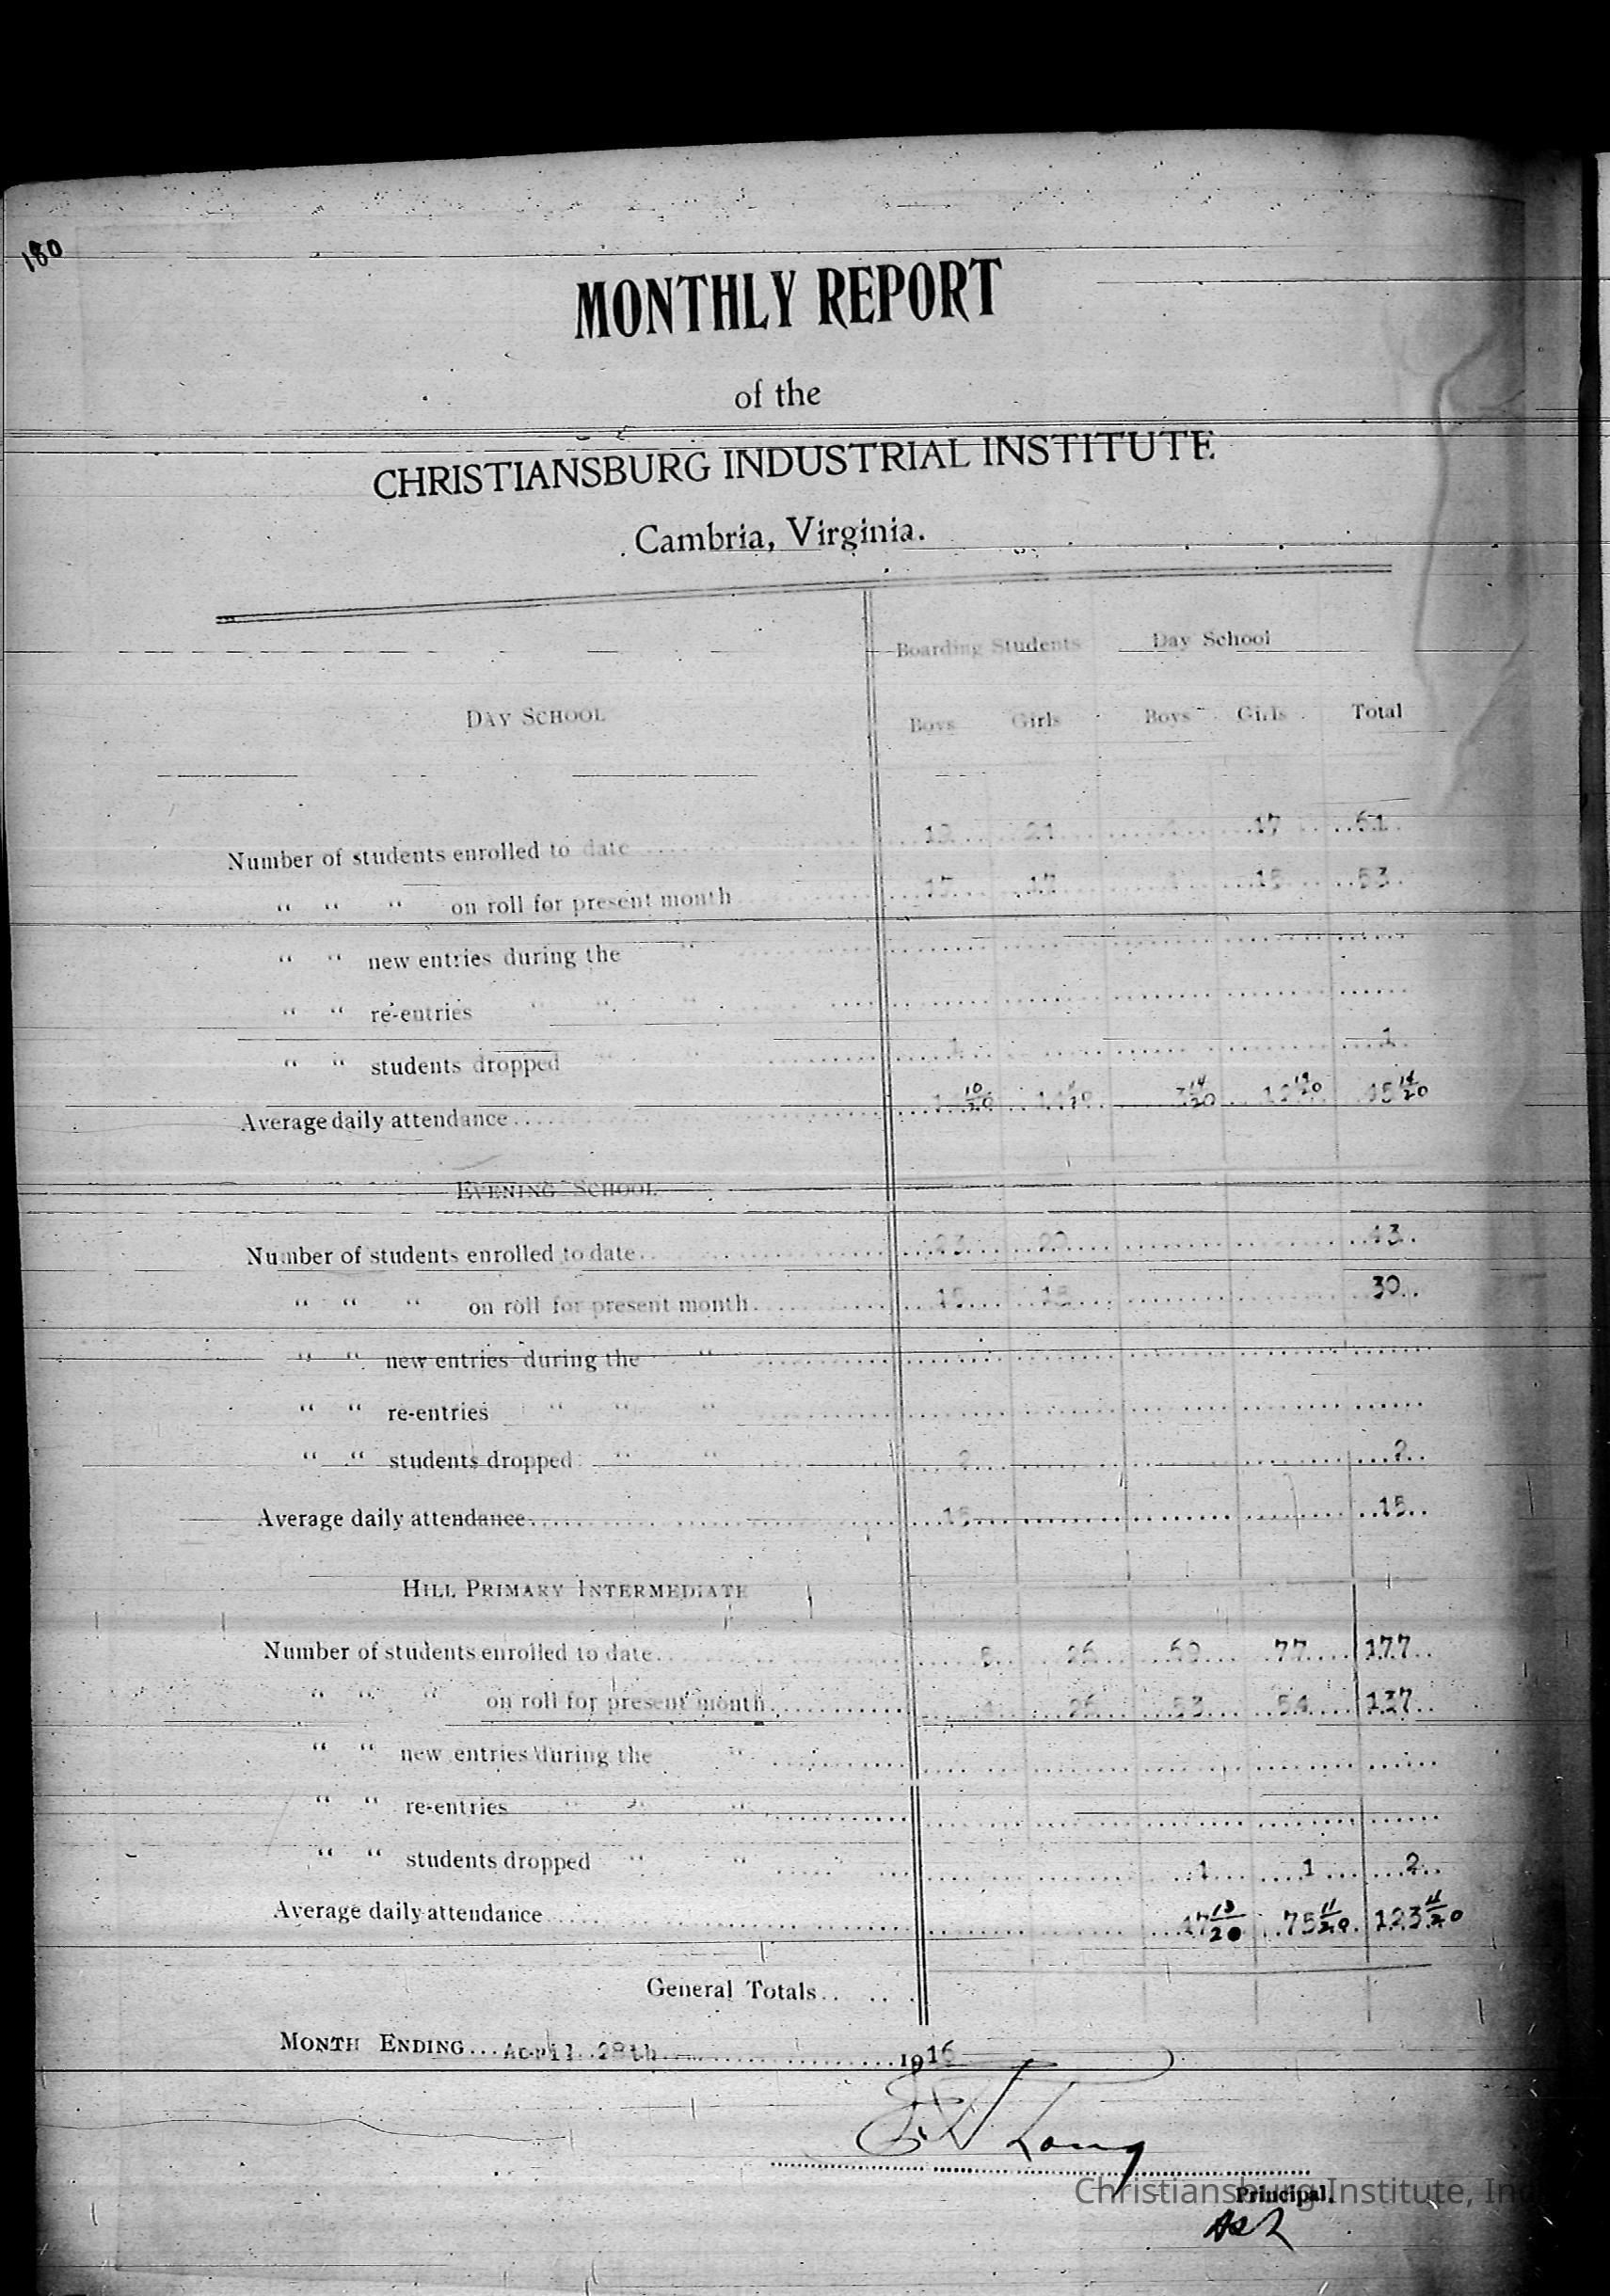 180
MONTHLY REPORT
of the
CHRISTIANSBURG INDUSTRIAL INSTITUTE
Cambria, Virginia.
Boarding Students Day School
DAY SCHOOL Boys Girls Boys Girls Total
Number of students enrolled to date 21 17 61
" " " on roll for present month 53
" " new entries during the "
" " re-entries " " "
" " students dropped " " 1 1
Average daily attendance 3 14/20 45 14/20
EVENING SCHOOL
Number of students enrolled to date 23 20 43
" " " on roll for present month 15 15 30
" " new entries during the "
" " re-entries " " "
" " students dropped " " 2 2
Average daily attendance 15 15
HILL PRIMARY INTERMEDIATE
Number of students enrolled to date 26 77 177
" " " on roll for present month 26 53 54 137
" " new entries during the "
" " re-entries " " "
" " students dropped " " 1 1 2
Average daily attendance 47 13/20 75 11/20 123 11/20
General Totals
MONTH ENDING April 28th 1916
Long
Principal.
Christiansburg Institute, In